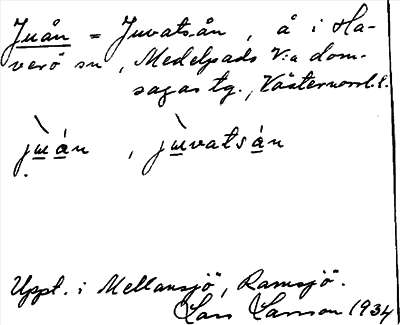 Juån = Juvatsån, å i Ha-
verö sn, Medelpads V:a dom-
sagas tg., Västernorrl. l.
jɯ̀án, jɯ̀vatsán
Uppt. i Mellansjö, Ramsjö.
Lars Larsson 1934